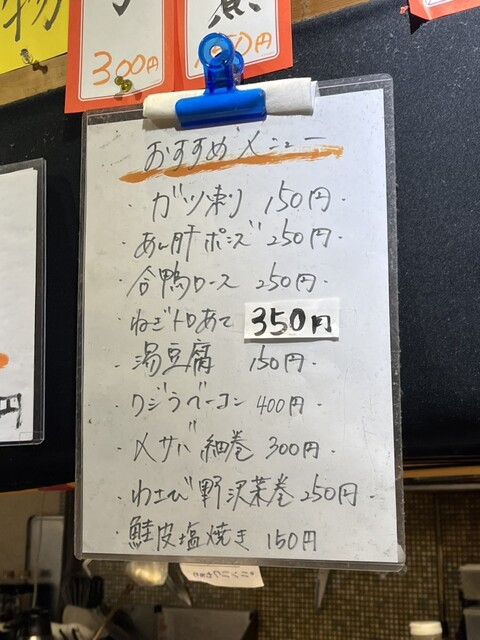 300円
おすすめメニュー
・ガツ刺 150円・
・あん肝ポンズ 250円・
・合鴨ロース 250円・
・ねぎトロあて 350円
・湯豆腐 150円・
・クジラベーコン 400円・
・〆サバ細巻 300円・
・わさび野沢菜巻 250円・
・鮭皮塩焼き 150円
円